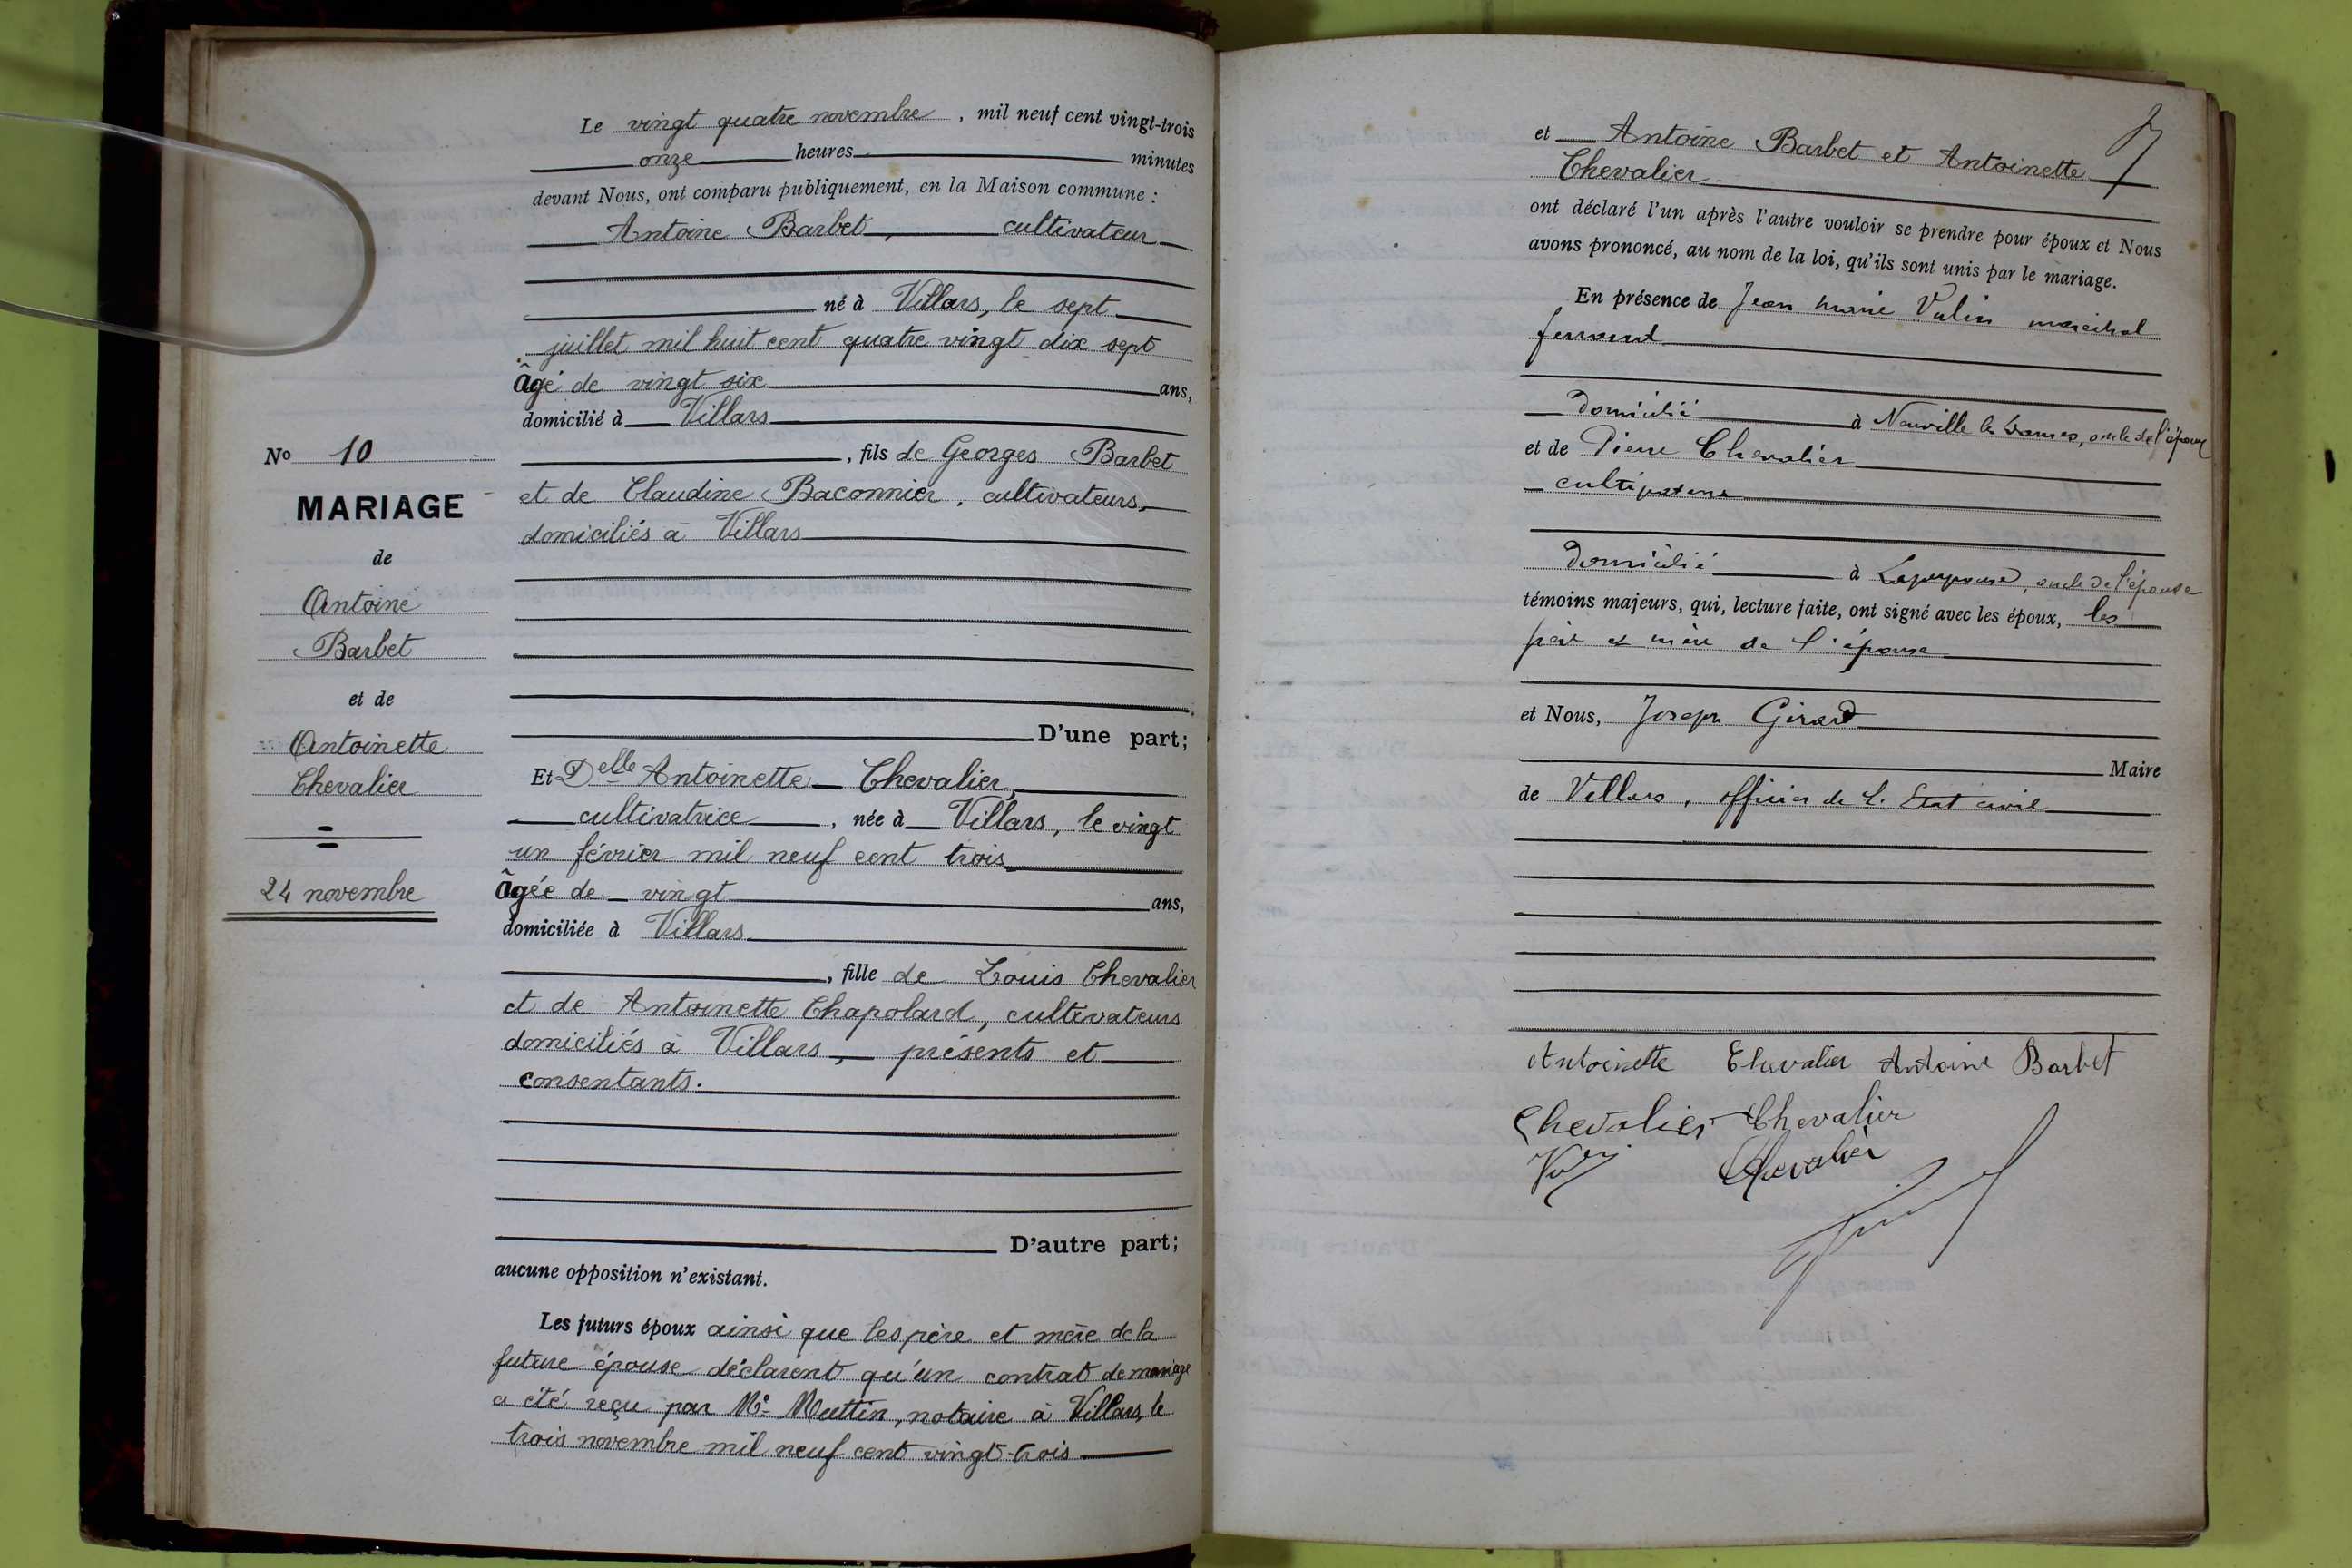 Le vingt quatre novembre, mil neuf cent vingt-trois
onze heures minutes
devant Nous, ont comparu publiquement, en la Maison commune :
Antoine Barbet, cultivateur
né à Villars, le sept
juillet mil huit cent quatre vingt dix sept
âgé de vingt six ans,
domicilié à Villars
, fils de Georges Barbet
et de Claudine Baconnier, cultivateurs,
domiciliés à Villars
D'une part;
Et Delle Antoinette Chevalier,
cultivatrice, née à Villars, le vingt
un février mil neuf cent trois
âgée de vingt ans,
domiciliée à Villars
, fille de Louis Chevalier
et de Antoinette Chapolard, cultivateurs
domiciliés à Villars, présents et
consentants.
D'autre part;
aucune opposition n'existant.
Les futurs époux ainsi que les père et mère de la
future épouse déclarent qu'un contrat de mariage
a été reçu par Me Muttin, notaire à Villars, le
trois novembre mil neuf cent vingt-trois
No 10
MARIAGE
de
Antoine
Barbet
et de
Antoinette
Chevalier
24 novembre
et Antoine Barbet et Antoinette
Chevalier
ont déclaré l'un après l'autre vouloir se prendre pour époux et Nous
avons prononcé, au nom de la loi, qu'ils sont unis par le mariage.
En présence de Jean Marie Vulin maréchal
ferrant
domicilié à Neuville les Dames, oncle de l'époux
et de Pierre Chevalier
cultivateur
domicilié à Lapeyrouse, oncle de l'épouse
témoins majeurs, qui, lecture faite, ont signé avec les époux, les
père et mère de l'épouse
et Nous, Joseph Girard
Maire
de Villars, officier de l'Etat civil
Antoinette Chevalier Antoine Barbet
Chevalier Chevalier
Chevalier